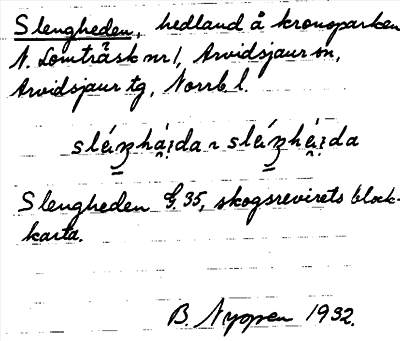 Slengheden, hedland å kronoparken
N. Lomträsk nr 1, Arvidsjaur sn,
Arvidsjaur tg, Norrb. l.
Slengheden G. 35, skogsrevirets block-
karta.
B. Nygren 1932.